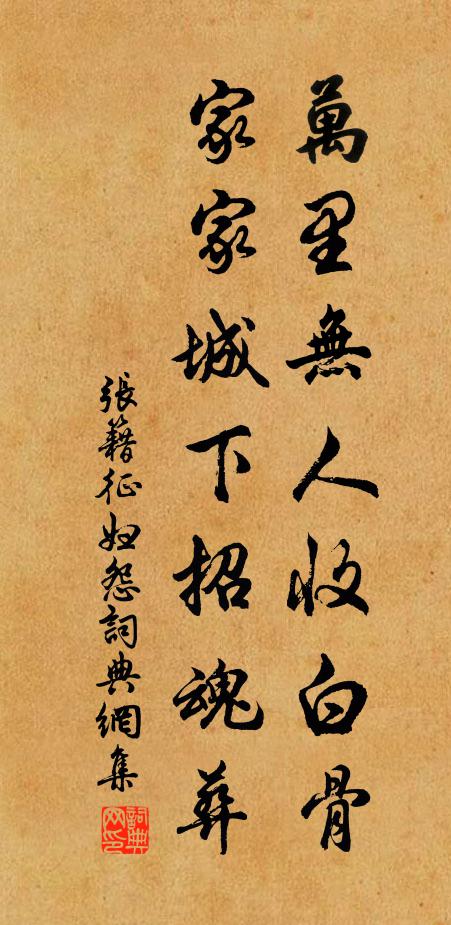 萬里無人收白骨
家家城下招魂葬
張籍征婦怨詞典網集
詞典網印